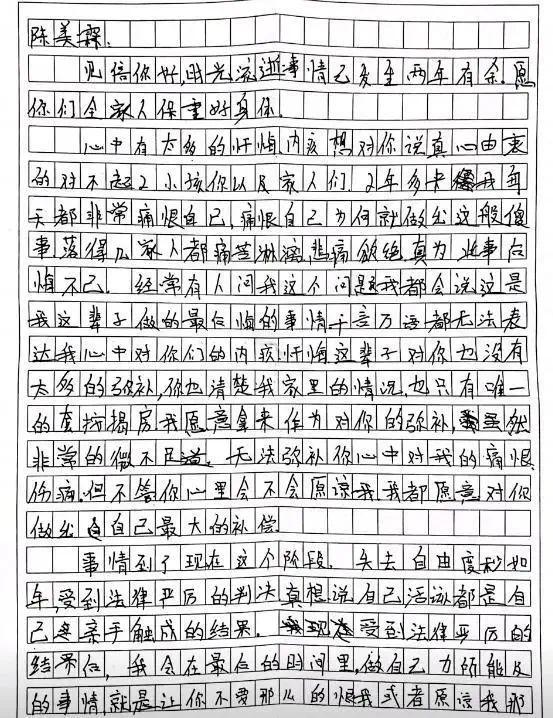 陈美霖.
见信你好,时光流逝事情已发生两年有余.愿
你们全家人保重好身体.
心中有太多的忏悔内疚想对你说真心由衷
的对不起2小孩你以及家人们.2年多来我每
天都非常痛恨自己,痛恨自己为何就做出这般傻
事,落得几家人都痛苦淋漓,悲痛欲绝真为此事后
悔不已.经常有人问我这个问题我都会说这是
我这辈子做的最后悔的事情千言万语都无法表
达我心中对你们的内疚忏悔这辈子对你也没有
太多的弥补,你也清楚我家里的情况,也只有唯一
的套按揭房我愿意拿来作为对你的弥补,虽然
非常的微不足道.无法弥补你心中对我的痛恨
伤痛.但不管你心里会不会原谅我我都愿意对你
做出自己最大的补偿.
事情到了现在这个阶段.失去自由度秒如
年,受到法律严厉的判决真想说自己活该都是自
己亲手触成的结果.受到法律严厉的
结果后,我会在最后的时间里,做自己力所能及
的事情,就是让你不要那么的恨我或者原谅我那